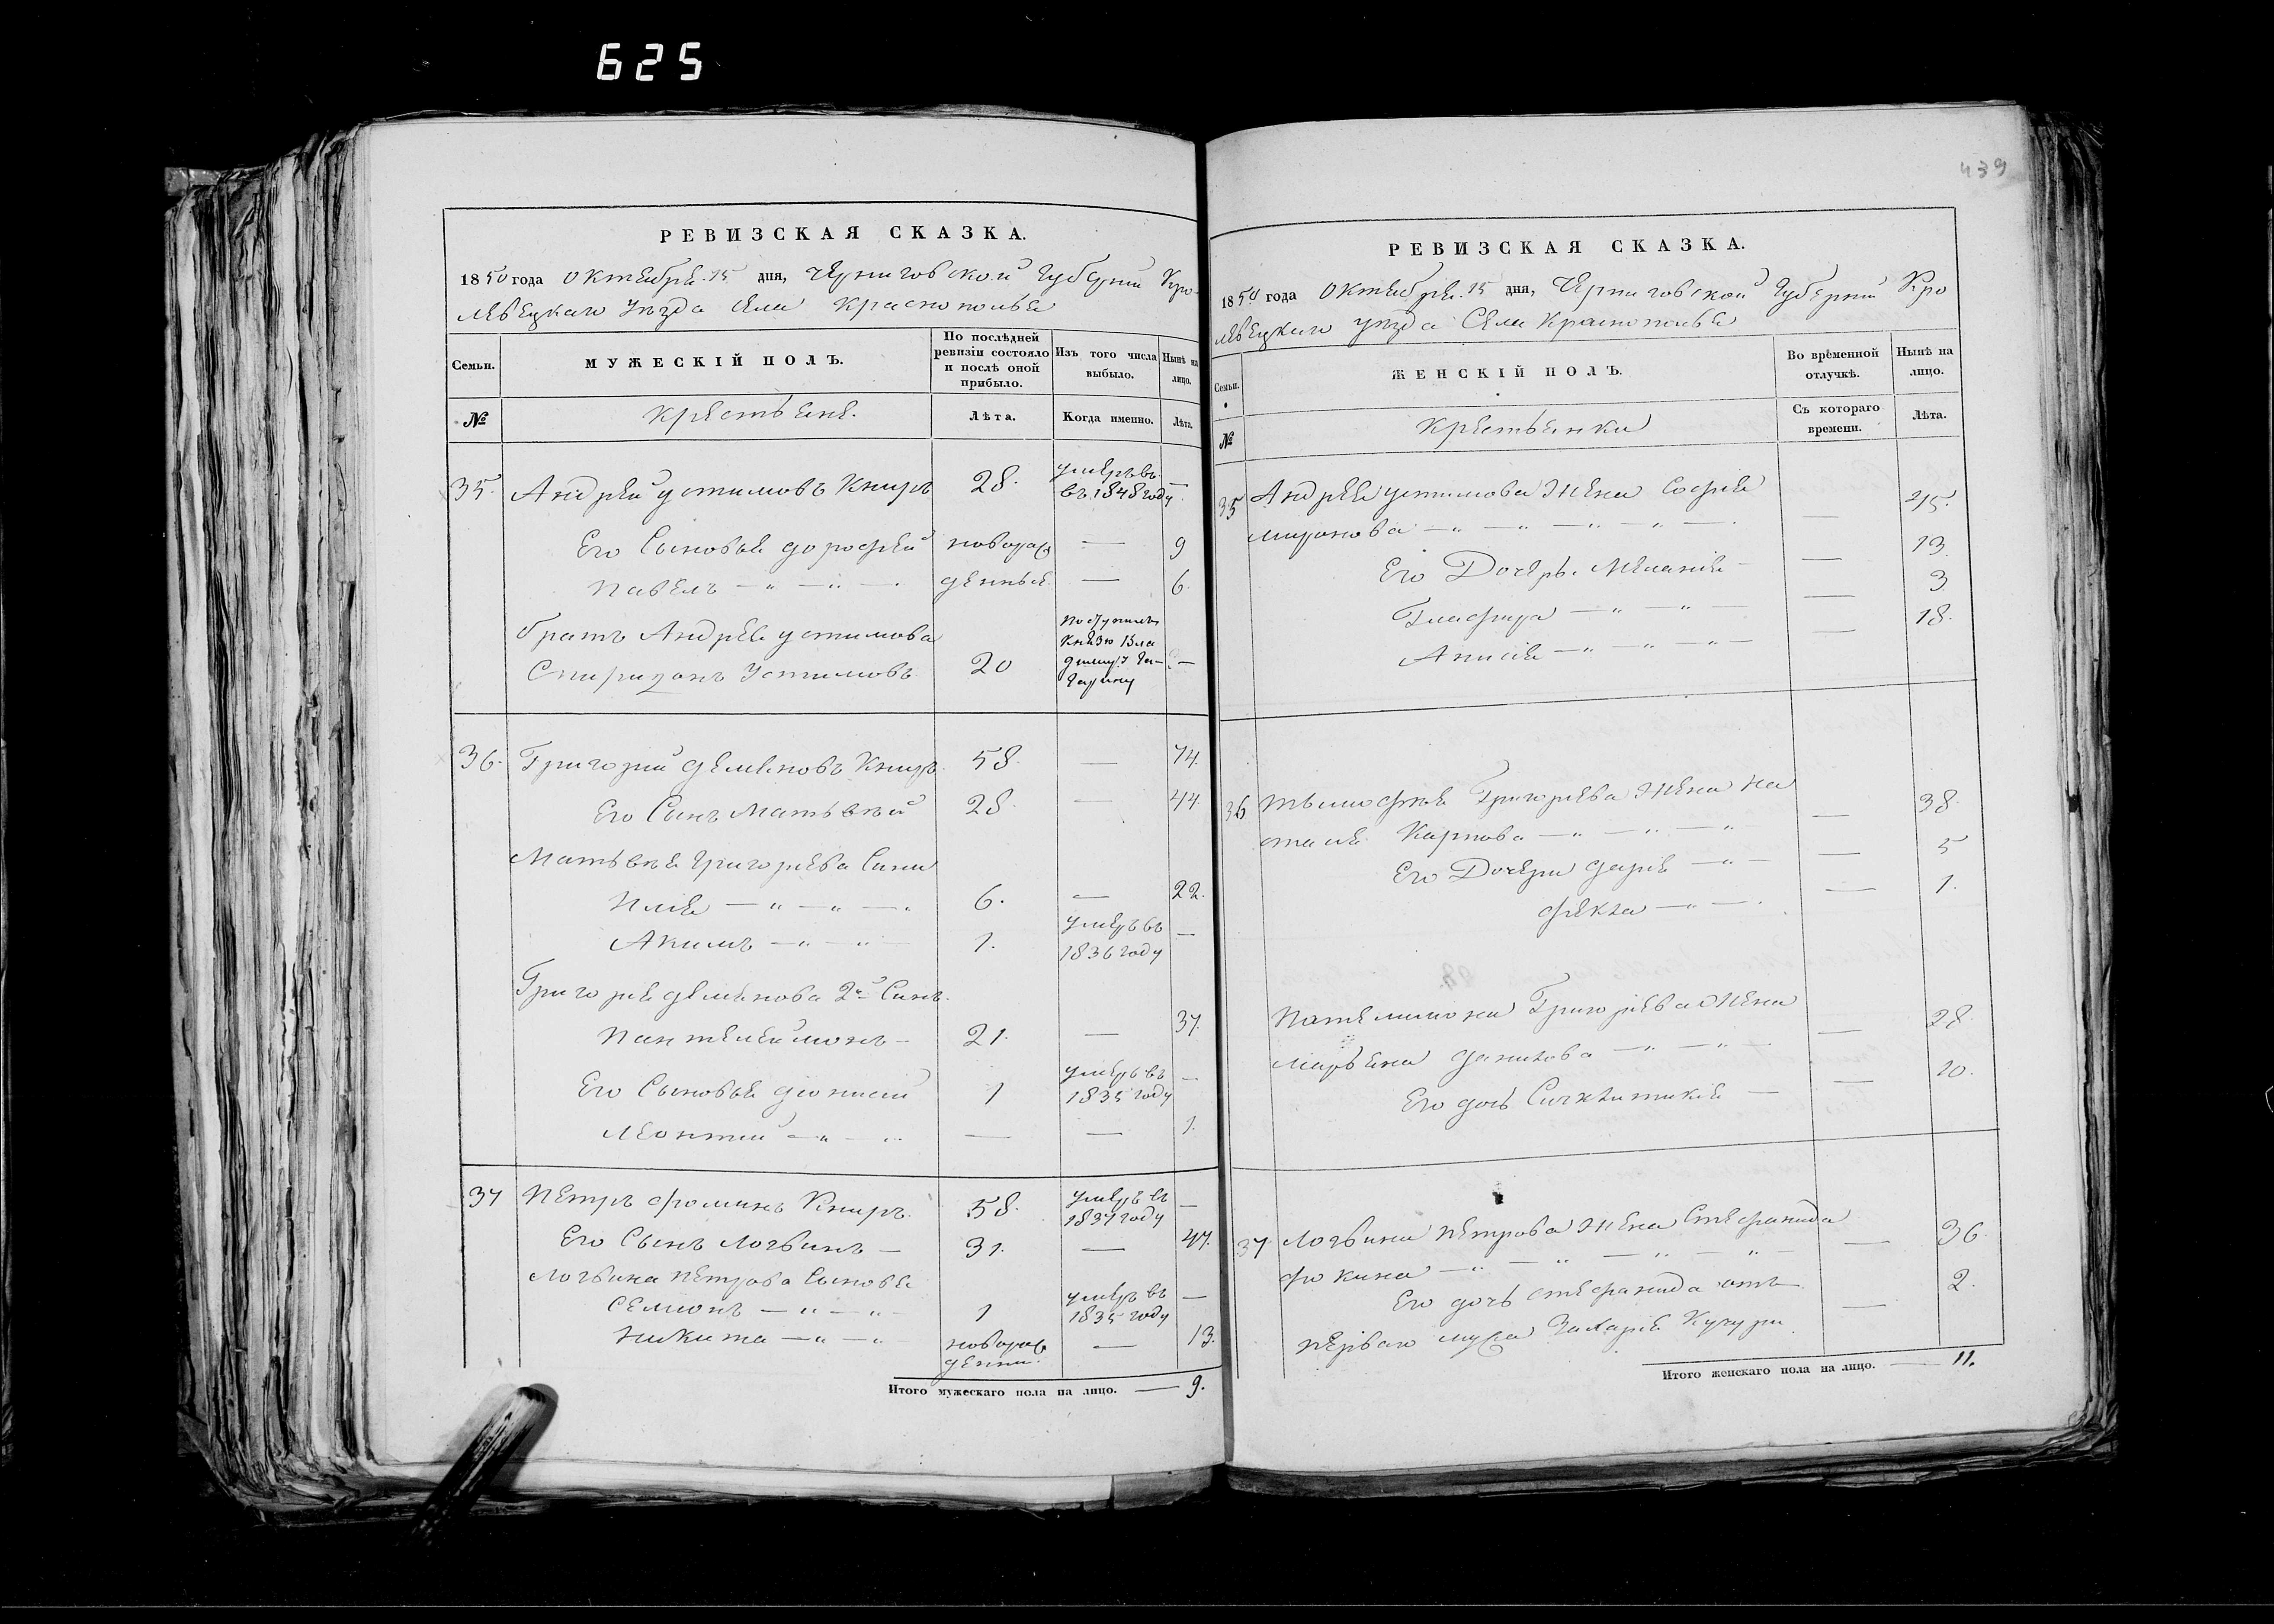 625
РЕВИЗСКАЯ СКАЗКА.
1850 года Октября 15 дня, Черниговской Губерніи Кро-
левецкаго Уезда Села Краснополья
Семьи.
МУЖЕСКІЙ ПОЛЪ.
По послѣдней ревизіи состояло и послѣ оной прибыло.
Изъ того числа выбыло.
Нынѣ на лицо.
№
Крестьяне.
Лѣта.
Когда именно.
Лѣта.
35. Андрей Устимовъ Книръ 28. умеръ въ 1848 году —
Его Сыновья дорофей новорож — 9
Павелъ — " — " — денные — 6.
братъ Андрея устимова
Спиридонъ Устимовъ 20 Князю Вла димиру Га- гарину —
36. Григорий деменовъ Книръ 58. — 74.
Его Сынъ Матьвѣй 28. — 44.
Матьвѣя Григорьева Сини
Илія — " — " — 6. — 22.
Акимъ — " — " — 1. умеръ въ 1836 году —
Григорія деменова 2й Синъ
Пантелеймонъ — 21. — 37.
Его Сыновья дионисій 1 умеръ въ 1835 году —
Леонтий — " — " — — 1.
37 Петръ фоминъ Книръ 58. умеръ въ 1837 году —
Его Сынъ Логвинъ — 31. — 47.
Логвина Петрова Сыновья
Семионъ — " — " 1 умеръ въ 1835 году —
Никита — " — " новорож денни. — 13.
Итого мужескаго пола на лицо. — 9.
439
РЕВИЗСКАЯ СКАЗКА.
1850 года Октября 15 дня, Черниговской Губерніи Кро
левецкаго уезда Села Краснополья
Семьи.
ЖЕНСКІЙ ПОЛЪ.
Во врѣменной отлучкѣ.
Нынѣ на лицо.
№
Крестьянки
Съ котораго времени.
Лѣта.
35 Андрея устимова Жена Софія
миронова — " — " — " — " — — 45.
Его Дочерь Меланія — — 13.
Глафира — " — " — — 3
Анисія — " — " — — 18.
36 Григорьева Жена На
талія Карпова — " — " — " — 38
Его Дочери дарія — " — — 5
фекла — " — . — 1.
Григорьева Жена
марьяна — " — " — — 28.
Его дочь — — 10.
37 Логвина Петрова Жена Стефанида
фокина — " — " — " — " — — 36.
Его дочь стефанида отъ
перваго мужа Захарія — 2.
Итого женскаго пола на лицо. — 11.